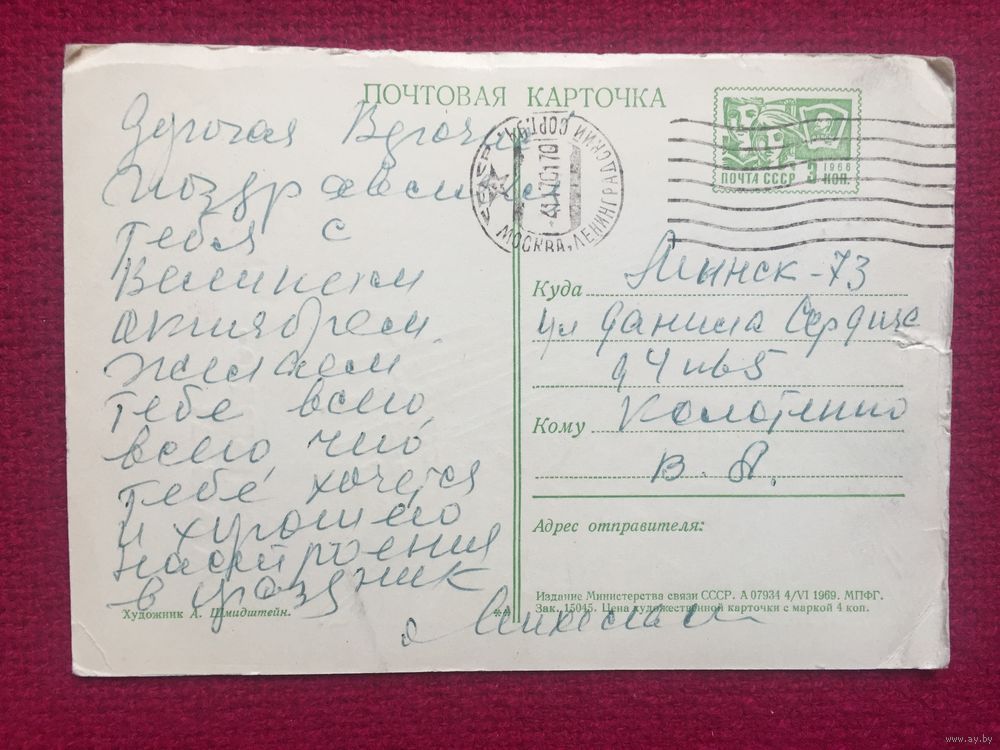 ПОЧТОВАЯ КАРТОЧКА
Дорогая Верочка
Поздравляем
тебя с
Великим
октябрем.
желаем
тебе всего,
всего чего
тебе хочется
и хорошего
настроения
в праздник
Художник А. Шмидштейн.
**
СССР
МОСКВА, ЛЕНИНГРАДСКИЙ СОРТ.
ПОЧТА СССР
3 КОП.
1966
Куда Минск-73
ул Данила Сердича
д 4 кв 5
Кому Колотенко
В. А.
Адрес отправителя:
Издание Министерства связи СССР. А 07934 4/VI 1969. МПФГ.
Зак. 15045. Цена художественной карточки с маркой 4 коп.
www.ay.by